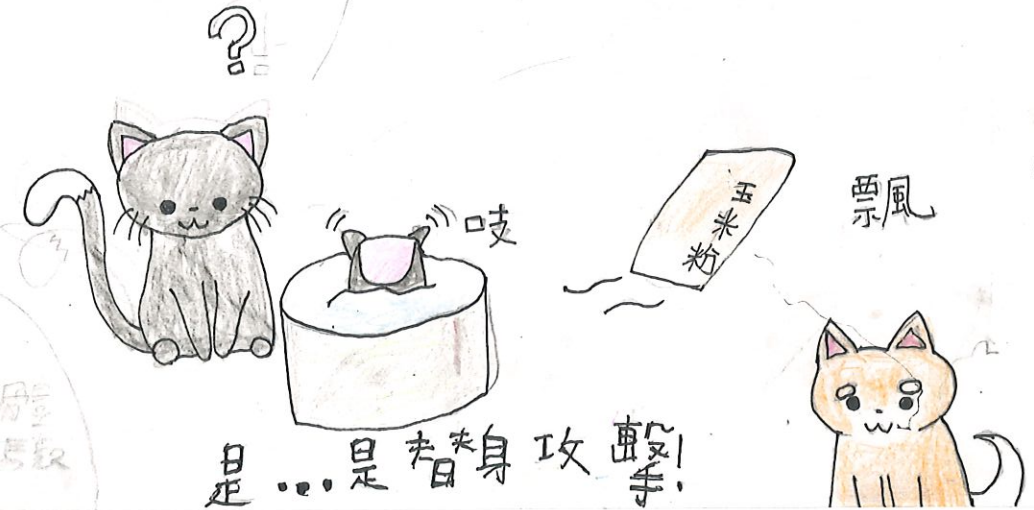 ?
吱
玉米粉
飄
是...是替身攻擊!